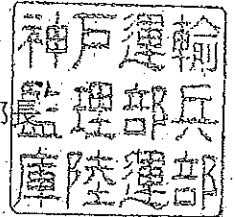 神戸運輸
監理部兵
庫陸運部
長